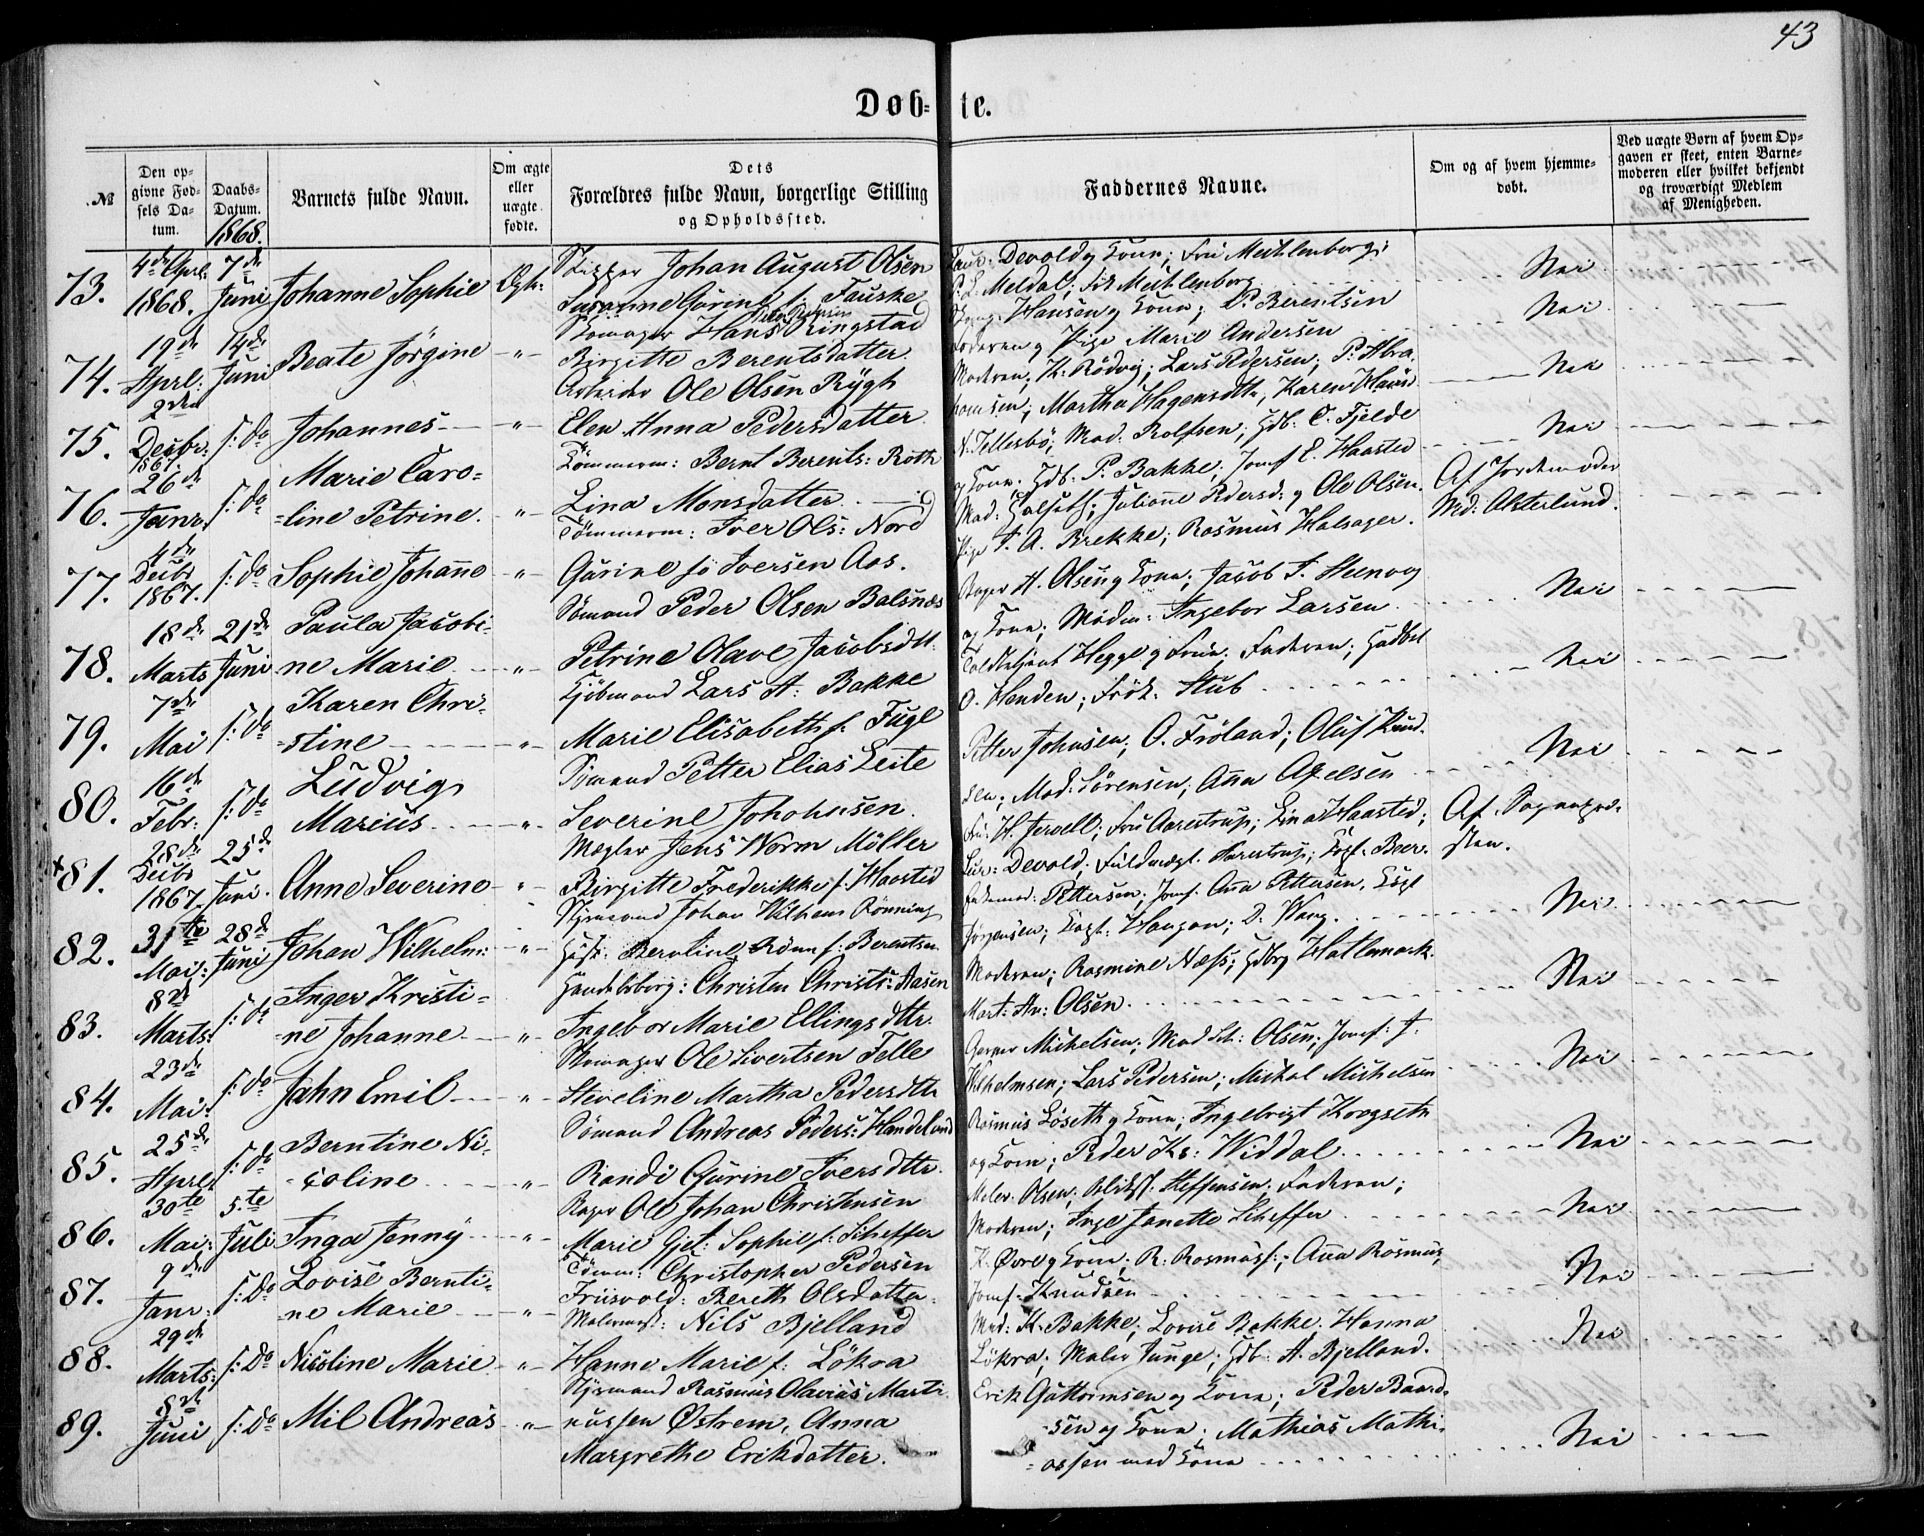 43
Døb- te.
№
Den opgivne Fødsels Datum.
Daabs-Datum.
1868.
Barnets fulde Navn.
Om ægte eller uægte fødte.
Dets Forældres fulde Navn, borgerlige Stilling og Opholdssted.
Faddernes Navne.
Om og af hvem hjemmedøbt.
Ved uægte Børn af hvem Opgaven er skeet, enten Barnemoderen eller hvilket bekjendt og troværdigt Medlem af Menigheden.
73. 4de April 1868. 7de Juni Johanne Sophie Ægte
Skipper Johan August Olsen
Susanne Gurine f. Fauske
Devold og Kone; Fru Meihlenborg;
P. L. Meldal; Meihlenborg
Nei
74. 19de Aprl: 14de Juni Beate Jörgine -"-
Skomager Hans Ringstad
Birgitte Berentsdatter.
Hansen og Kone; P. Berentsen
Faderen og Pige Marie Andersen
Nei
75. 2den Decbr: 1867. s: Do Johannes -"-
Arbeider Ole Olsen Rygh
Elen Anna Pedersdatter
Moderen; K. Rödvig; Lars Pedersen; P. Abra-
hamsen; Martha Hagensdtr, Karen
Nei
76. 26de Janr. s: Do Marie Caro-
=line Petrine. -"-
Tömmerm: Bernt Berents: Roth
Lina Monsdatter.
N. Tellesbö; Mad: Rolfsen; Gdb. C. Fjelde
og Kone. Gdb: P. Bakke; Jomf E. Haasted
Nei
77. 4de Decbr 1867. s: Do Sophie Johane -"-
Tömmerm: Iver Ols: Nord
Gurine Iversen Aas.
Mad: Galseth; Juliane Pedersd: og Ole Olsen.
Pige T. A. Brekke; Rasmus Halsager.
Af Jordemoder
Md: Akterlund.
78. 18de Marts 21de Juni Paula Jacobi-
ne Marie -"-
Sömand Peder Olsen Balsnes
Petrine Olave Jacobsdtt.
Bager H. Olsen og Kone; Jacob T.
og Kone; Madm: Ingebor Larsen
Nei
79. 7de Mai s: Do Karen Chri-
=stine -"-
Kjöbmand Lars A: Bakke
Marie Elisabeth f. Fugl
Hegge og Frue; Faderen;
O. Handen; Frök. Stub
Nei
80. 16de Febr: s: Do Ludvig
Marius -"-
Sömand Petter Elias Leite
Severine Johansen.
Petter Johnsen; O. Fröland; Oluf Knud-
sen; Mad: Sörensen; Ana Axelsen
Nei
+81. 28de Decbr 1867. 25de Juni. Anne Severine -"-
Mægler Jens Worm Möller
Birgitte Frederikke f. Haasted
Fru H. Jervell; Fru Aarestrup; Lina Haasted;
Devold; Fuldmægt. Aarestrup;
Af Sognepræ-
sten.
82. 31te Mai: 28de Juni Johan Wilhelm: -"-
Styrmand Johan Wilhem Rönning
Hust: Berntine Rönn f: Berentsen
Pettersen; Jomf. Ana Pettersen, Kapt
Jörgensen; Kapt. Haugan; D. Wang.
Nei
83. 8de Marts: s: Do Inger Kristi-
=ne Johanne -"-
Handelsborg: Christen Christs: Aasen
Ingebor Marie Ellingsdtr.
Moderen; Rasmine Næss; Gdbrg Hatlemark.
Mart: An: Olsen.
Nei
84. 23de Mai: s: Do Jahn Emil -"-
Skomager Ole Sivertsen Felle
Steveline Martha Pedersdtr
Garver Michelsen; Mad Sch: Olsen; Jomf: J.
Wilhelmsen; Lars Pedersen; Mickal Michelsen
Nei
85. 25de Aprl s: Do Berntine Ni-
=coline -"-
Sömand Andreas Peders: Handeland
Randi Gurine Iversdtr.
Rasmus Löseth og Kone; Ingebrigt Krogseth
og Kone; Peder Kr: Widdal
Nei
86. 30te Mai: 5.te Juli Inga Jenny -"-
Bager Ole Johan Christensen
Marie Gjet: Sophie f: Scheffer
Maler Olsen; Steffensen; Faderen;
Moderen; Inge Janette Scheffer
Nei
87. 9de Janr: s: Do Lovise Bernti-
=ne Marie -"-
Tömm: Christopher Pedersen
Friisvold: Bereth Olsdatter
K. Övre og Kone; R. Rasmuss:; Ana Rasmus,
Jomf. Knudsen
Nei
88. 29de Marts: s: Do Nicoline Marie -"-
Malermst: Nils Bjelland
Hanne Marie f: Lökra
Mad: K. Bakke; Lovise Bakke. Hanna
Lökra; Maler Junge; Gdb: A. Bjelland.
Nei
89. 8de Juni s: Do Mil Andreas -"-
Styrmand Rasmus Olavius Marti-
nussen Östrem, Anna
Margrethe Eriksdatter.
Erik Guttormsen og Kone; Peder Baard-
=sen og Kone; Mathias Mathi-
=assen med Kone
Nei